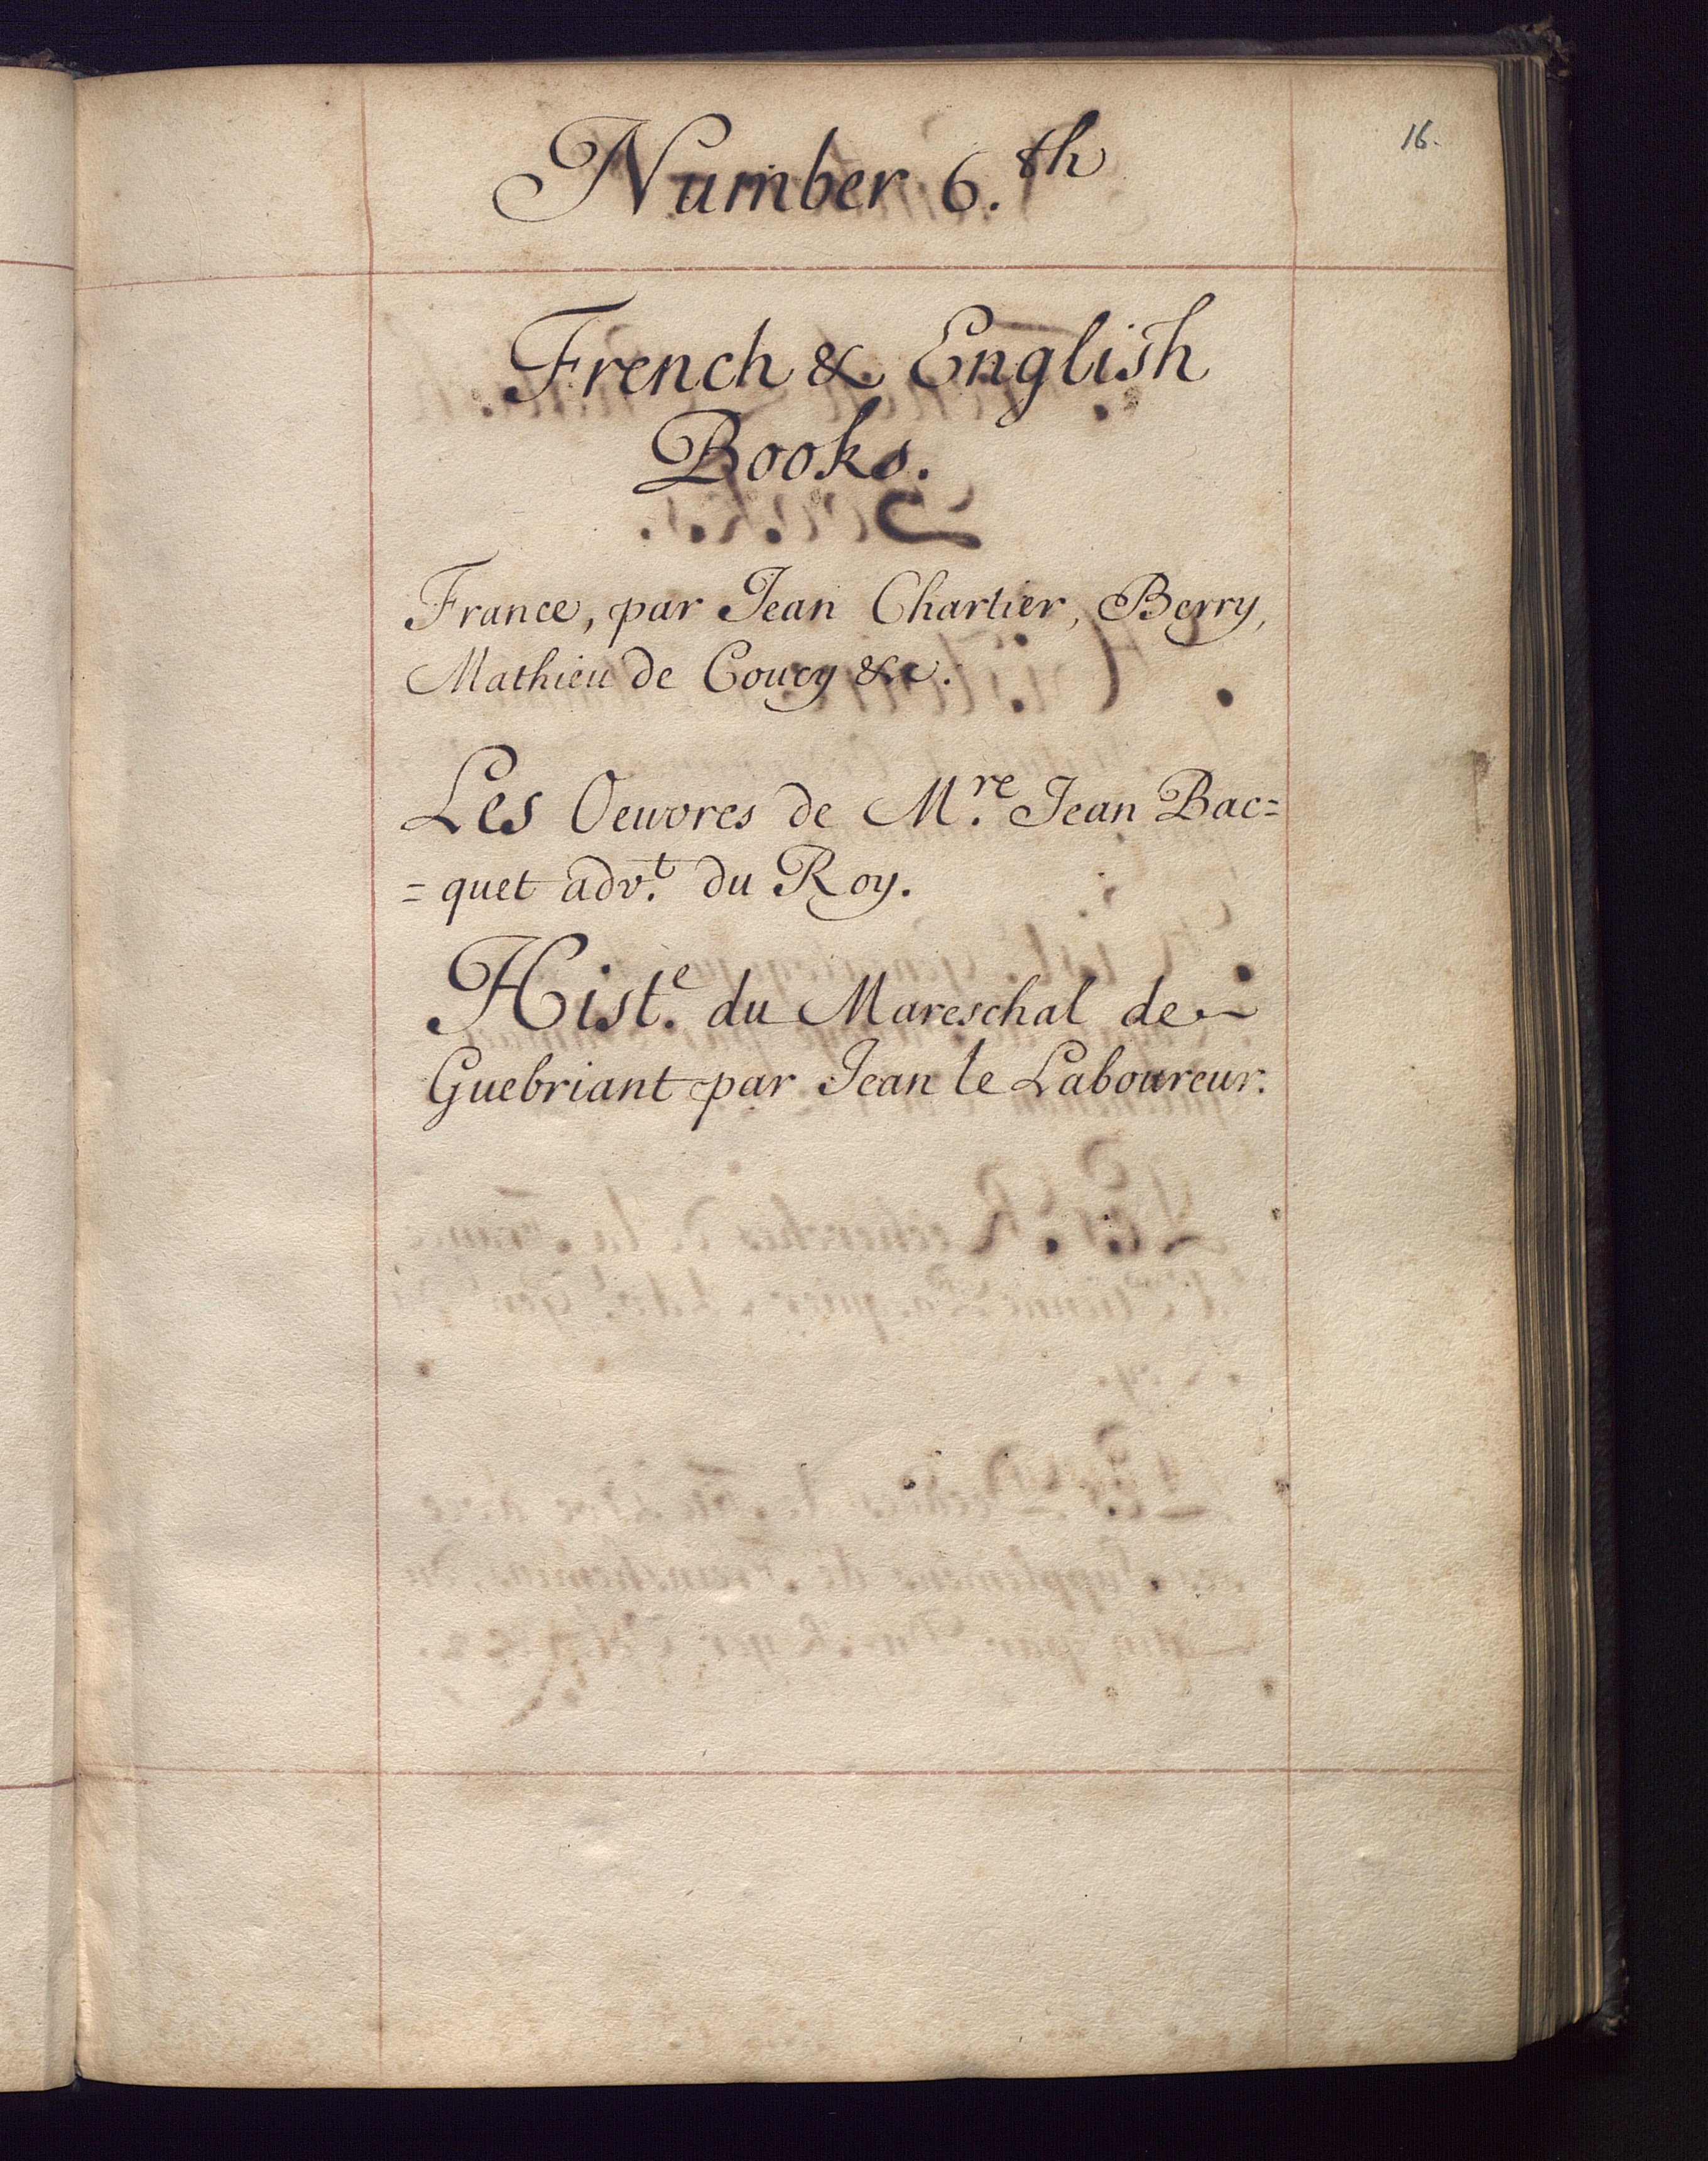 16.
Number 6.th
French & English
Books.
France, par Jean Chartier, Berry,
Mathieu de Coucy &c.
Les Oeuvres de M.re Jean Bac=
= quet adv.t du Roy.
Hist.e du Mareschal de
Guebriant par Jean le Laboureur.